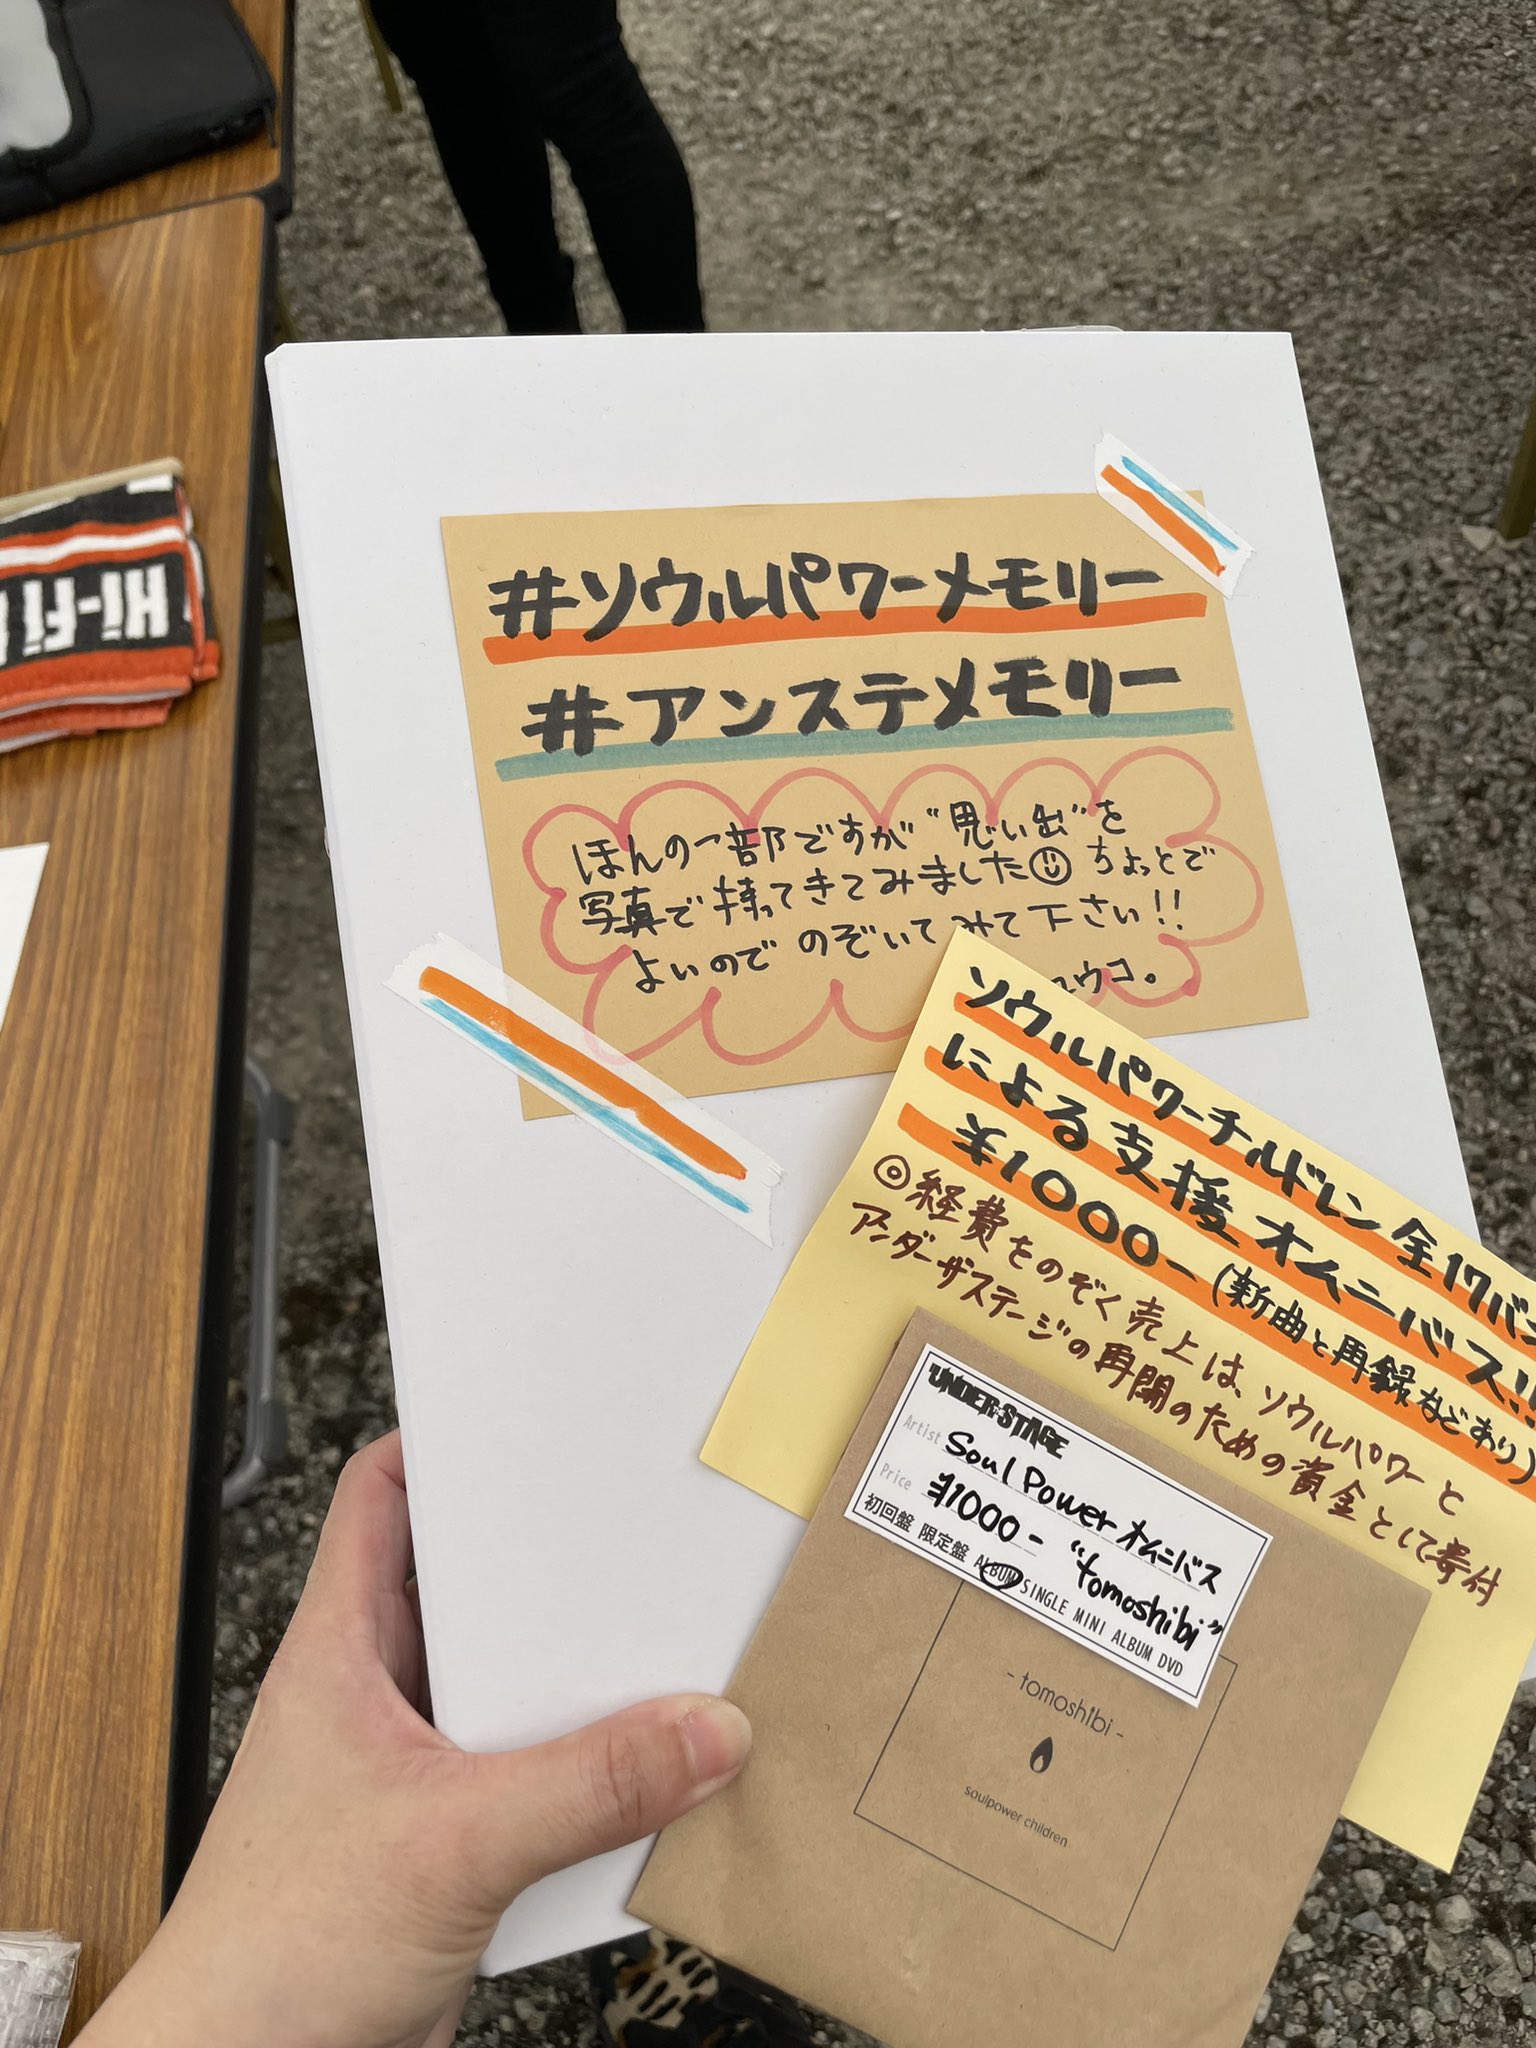 Hi-Fi
#ソウルパワーメモリー
#アンステメモリー
ほんの一部ですが"思い出"を
写真で持ってきてみました ちょっとで
よいので のぞいてみて下さい!!
ユウコ。
ソウルパワーチルドレン全17バン
による支援オムニバス!!
¥1000-(新曲と再録などあり)
◎経費をのぞく売上は、ソウルパワーと
アンダーザステージの再開のための資金として寄付
UNDER THE STAGE
Artist Soul Power オムニバス
Price ¥1000- "tomoshibi"
初回盤 限定盤 ALBUM SINGLE MINI ALBUM DVD
- tomoshibi -
soulpower children